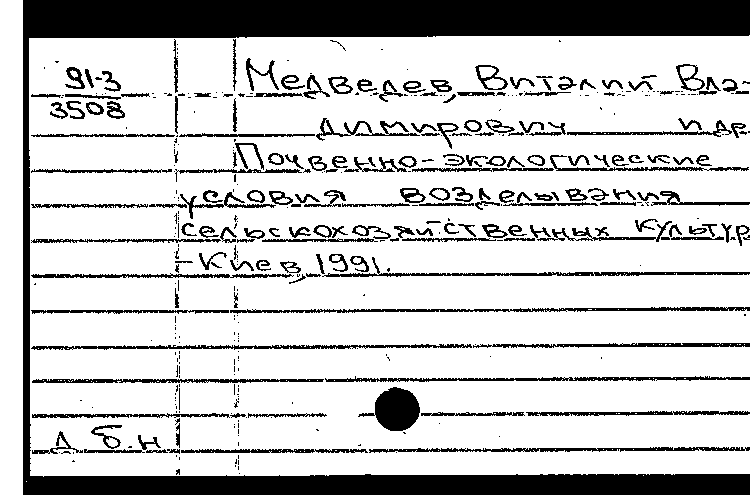 91-3
3508
Медведев, Виталий Вла-
димирович и др.
Почвенно-экологические
условия возделывания
сельскохозяйственных культур
-Киев, 1991.
д б.н